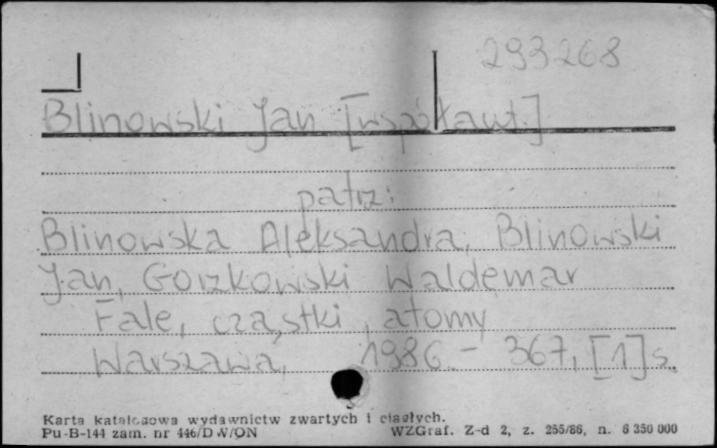 293268
Blinowski Jan [współaut.]
patrz:
Blinowska Aleksandra, Blinowski
Jan, Gorzkowski Waldemar
Fale, cząstki, atomy
Warszawa, 1986. - 367, [1] s.
Karta katalogowa wydawnictw zwartych i ciągłych.
Pu-B-144 zam. nr 446/DW/ON WZGraf. Z-d 2, z. 255/86, n. 6 350 000